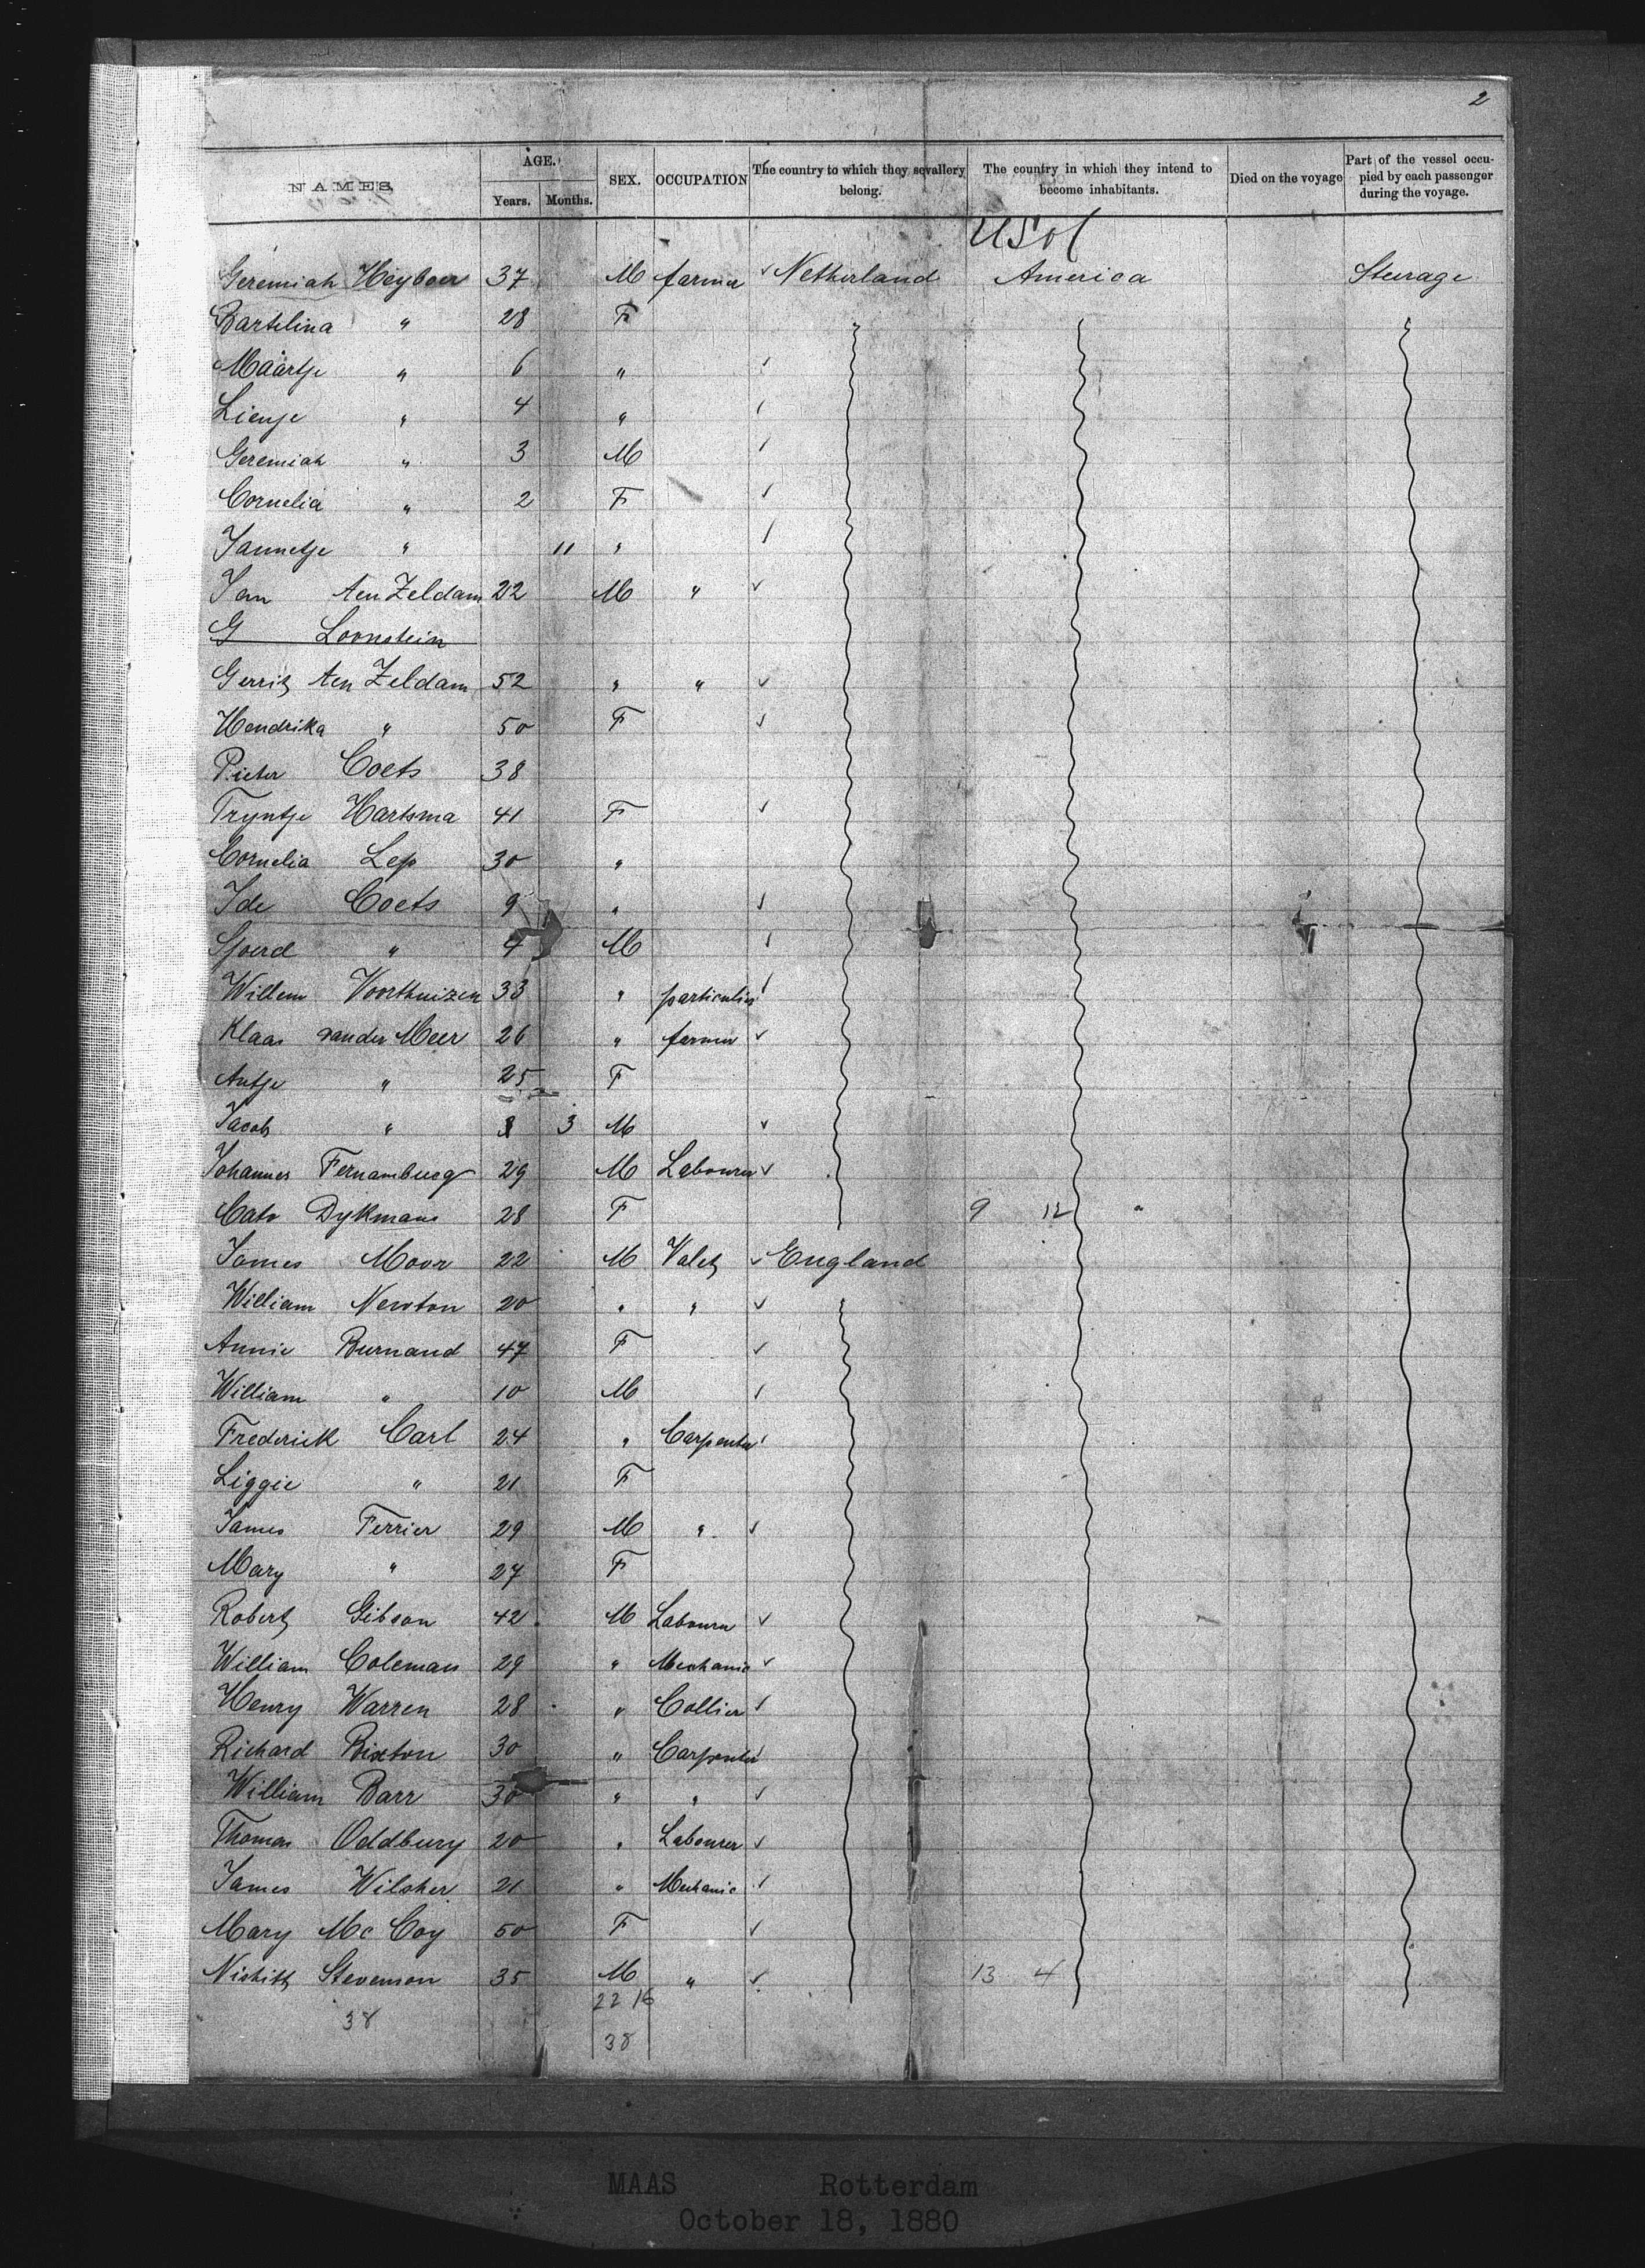 2
NAMES AGE. Years. Months. SEX. OCCUPATION The country to which they sevallery belong. The country in which they intend to become inhabitants. Died on the voyage Part of the vessel occupied by each passenger during the voyage.
US of
Geremiah Heyboer 37 M farmer ✓ Netherland America Steerage
Bartelina " 28 F
Maartje " 6 " ✓
Lientje " 4 " ✓
Geremiah " 3 M ✓
Cornelia " 2 F ✓
Jannetje " 11 " ✓
Jan ten Zeldam 22 M " ✓
G Loonstein
Gerrit ten Zeldam 52 " " ✓
Hendrika " 50 F ✓
Pieter Coets 38
Tryntje Hartsma 41 F ✓
Cornelia Lep 30 "
Ide Coets 9 " ✓
Sjoerd " 4 M ✓
Willem Voorthuizen 33 " particulier ✓
Klaas van der Meer 26 " farmer ✓
Antje " 25 F
Jacob " 3 M ✓
Johannes Fernambucq 29 M Labourer ✓
Cato Dykmans 28 F 9 12 "
James Moor 22 M Valet ✓ England
William Newton 20 " " ✓
Annie Burnand 47 F ✓
William " 10 M ✓
Frederick Carl 24 " Carpenter ✓
Liggie " 21 F
James Ferrier 29 M " ✓
Mary " 27 F
Robert Gibson 42 M Labourer ✓
William Coleman 29 " Mechanic ✓
Henry Warren 28 " Collier ✓
Richard Bixton 30 " Carpenter ✓
William Barr 30 " " ✓
Thomas Oddbury 20 " Labourer ✓
James Wilsher 21 " Mechanic ✓
Mary Mc Coy 50 F ✓
Nisbith Stevenson 35 M " ✓ 13 4
22 16
38
38
MAAS Rotterdam
October 18, 1880